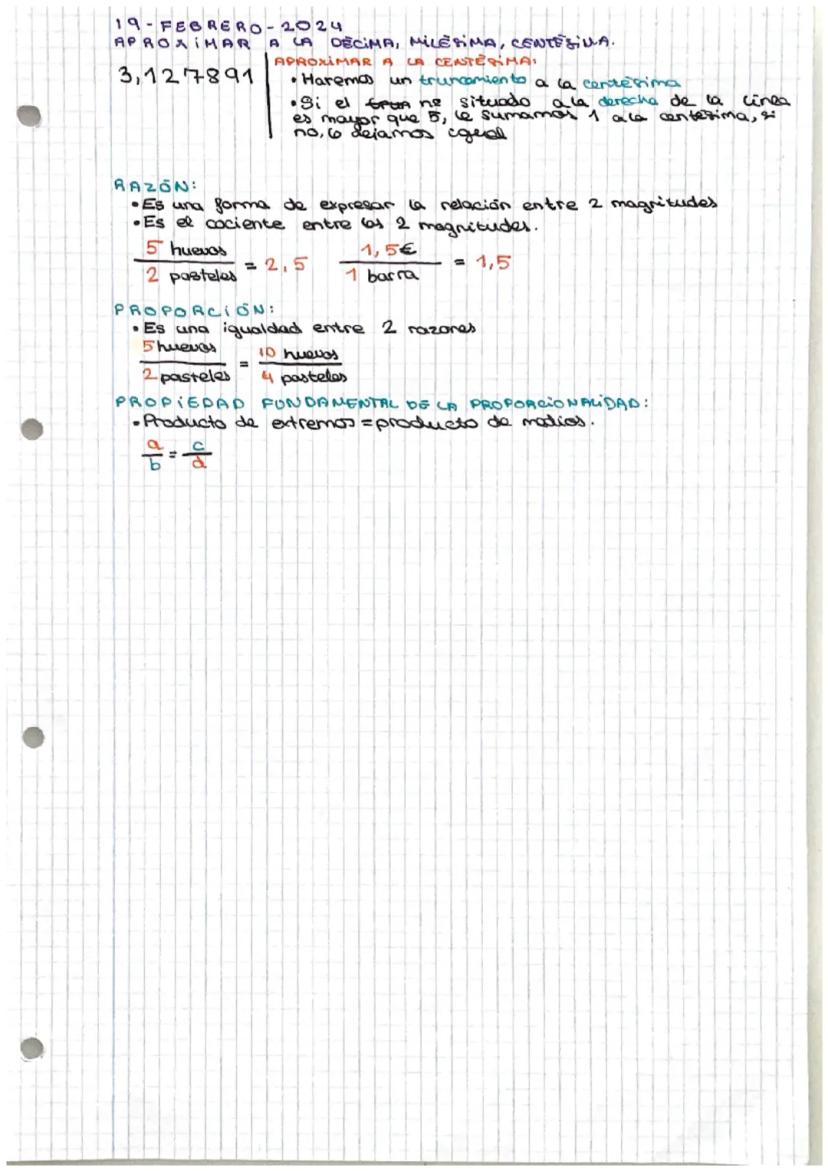 19-FEBRERO-2024
APROXIMAR A LA DÉCIMA, MILÉSIMA, CENTÉSIMA.
3,127891
APROXIMAR A LA CENTÉSIMA:
• Haremos un truncamiento a la centésima
• Si el nº situado a la derecha de la línea
es mayor que 5, le sumamos 1 a la centésima, si
no, lo dejamos igual
RAZÓN:
• Es una forma de expresar la relación entre 2 magnitudes
• Es el cociente entre las 2 magnitudes.
5 huevos / 2 pasteles = 2,5   1,5€ / 1 barra = 1,5
PROPORCIÓN:
• Es una igualdad entre 2 razones
5 huevos / 2 pasteles = 10 huevos / 4 pasteles
PROPIEDAD FUNDAMENTAL DE LA PROPORCIONALIDAD:
• Producto de extremos = producto de medios.
a/b = c/d